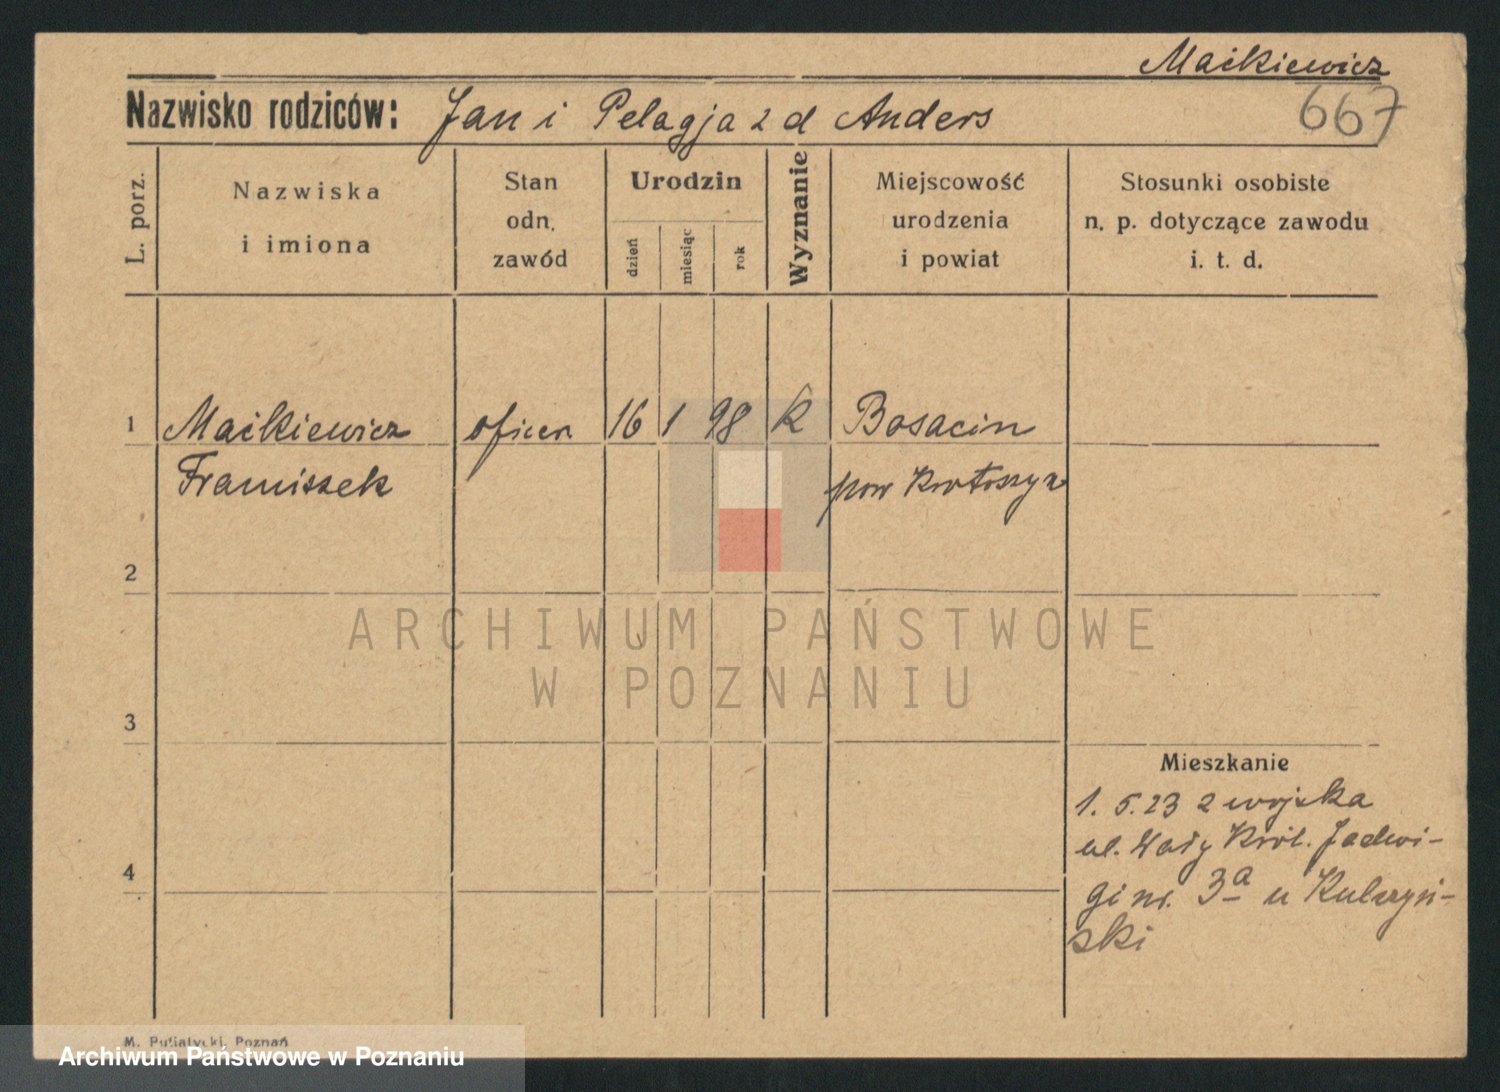 Maćkiewicz
667
Nazwisko rodziców: Jan i Pelagja z d Anders
L. porz.
Nazwiska
i imiona
Stan
odn.
zawód
Urodzin
dzień
miesiąc
rok
Wyznanie
Miejscowość
urodzenia
i powiat
Stosunki osobiste
n. p. dotyczące zawodu
i. t. d.
1 Maćkiewicz oficer 16 1 98 K Bosacin
Franciszek pow Krotoszyn
2
3
4
Mieszkanie
1. 5. 23 z wojska
ul. Wały Król. Jadwi-
gi nr. 3a u Kulczyń-
ski
ARCHIWUM PAŃSTWOWE
W POZNANIU
M. Putiatycki, Poznań
Archiwum Państwowe w Poznaniu